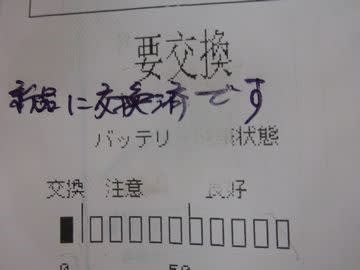 要交換
新品に交換済です
バッテリ 状態
交換 注意 良好
0 50